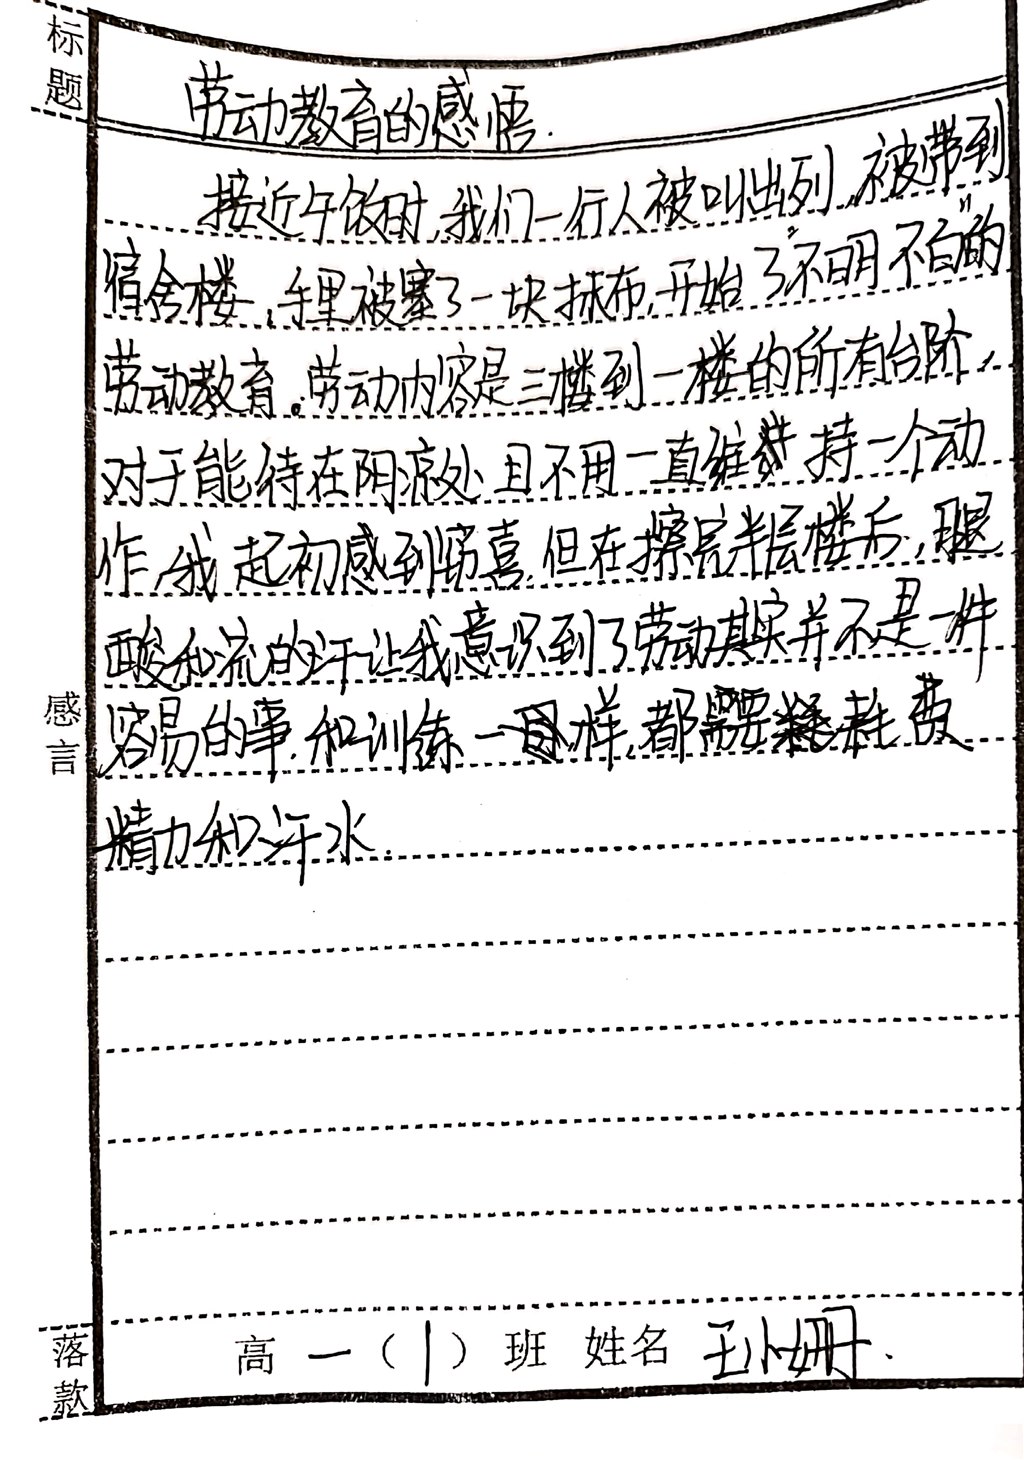 标题
劳动教育的感悟.
接近午饭时,我们一行人被叫出列,被带到
宿舍楼,手里被塞了一块抹布,开始了"不明不白"的
劳动教育。劳动内容是三楼到一楼的所有台阶,
对于能待在阴凉处且不用一直维持一个动
作,我起初感到窃喜,但在擦完半层楼后,腿
酸和流的汗让我意识到了劳动其实并不是一件
容易的事.和训练一样,都需要耗费
精力和汗水.
感言
落款
高一(1)班 姓名 王小姗.